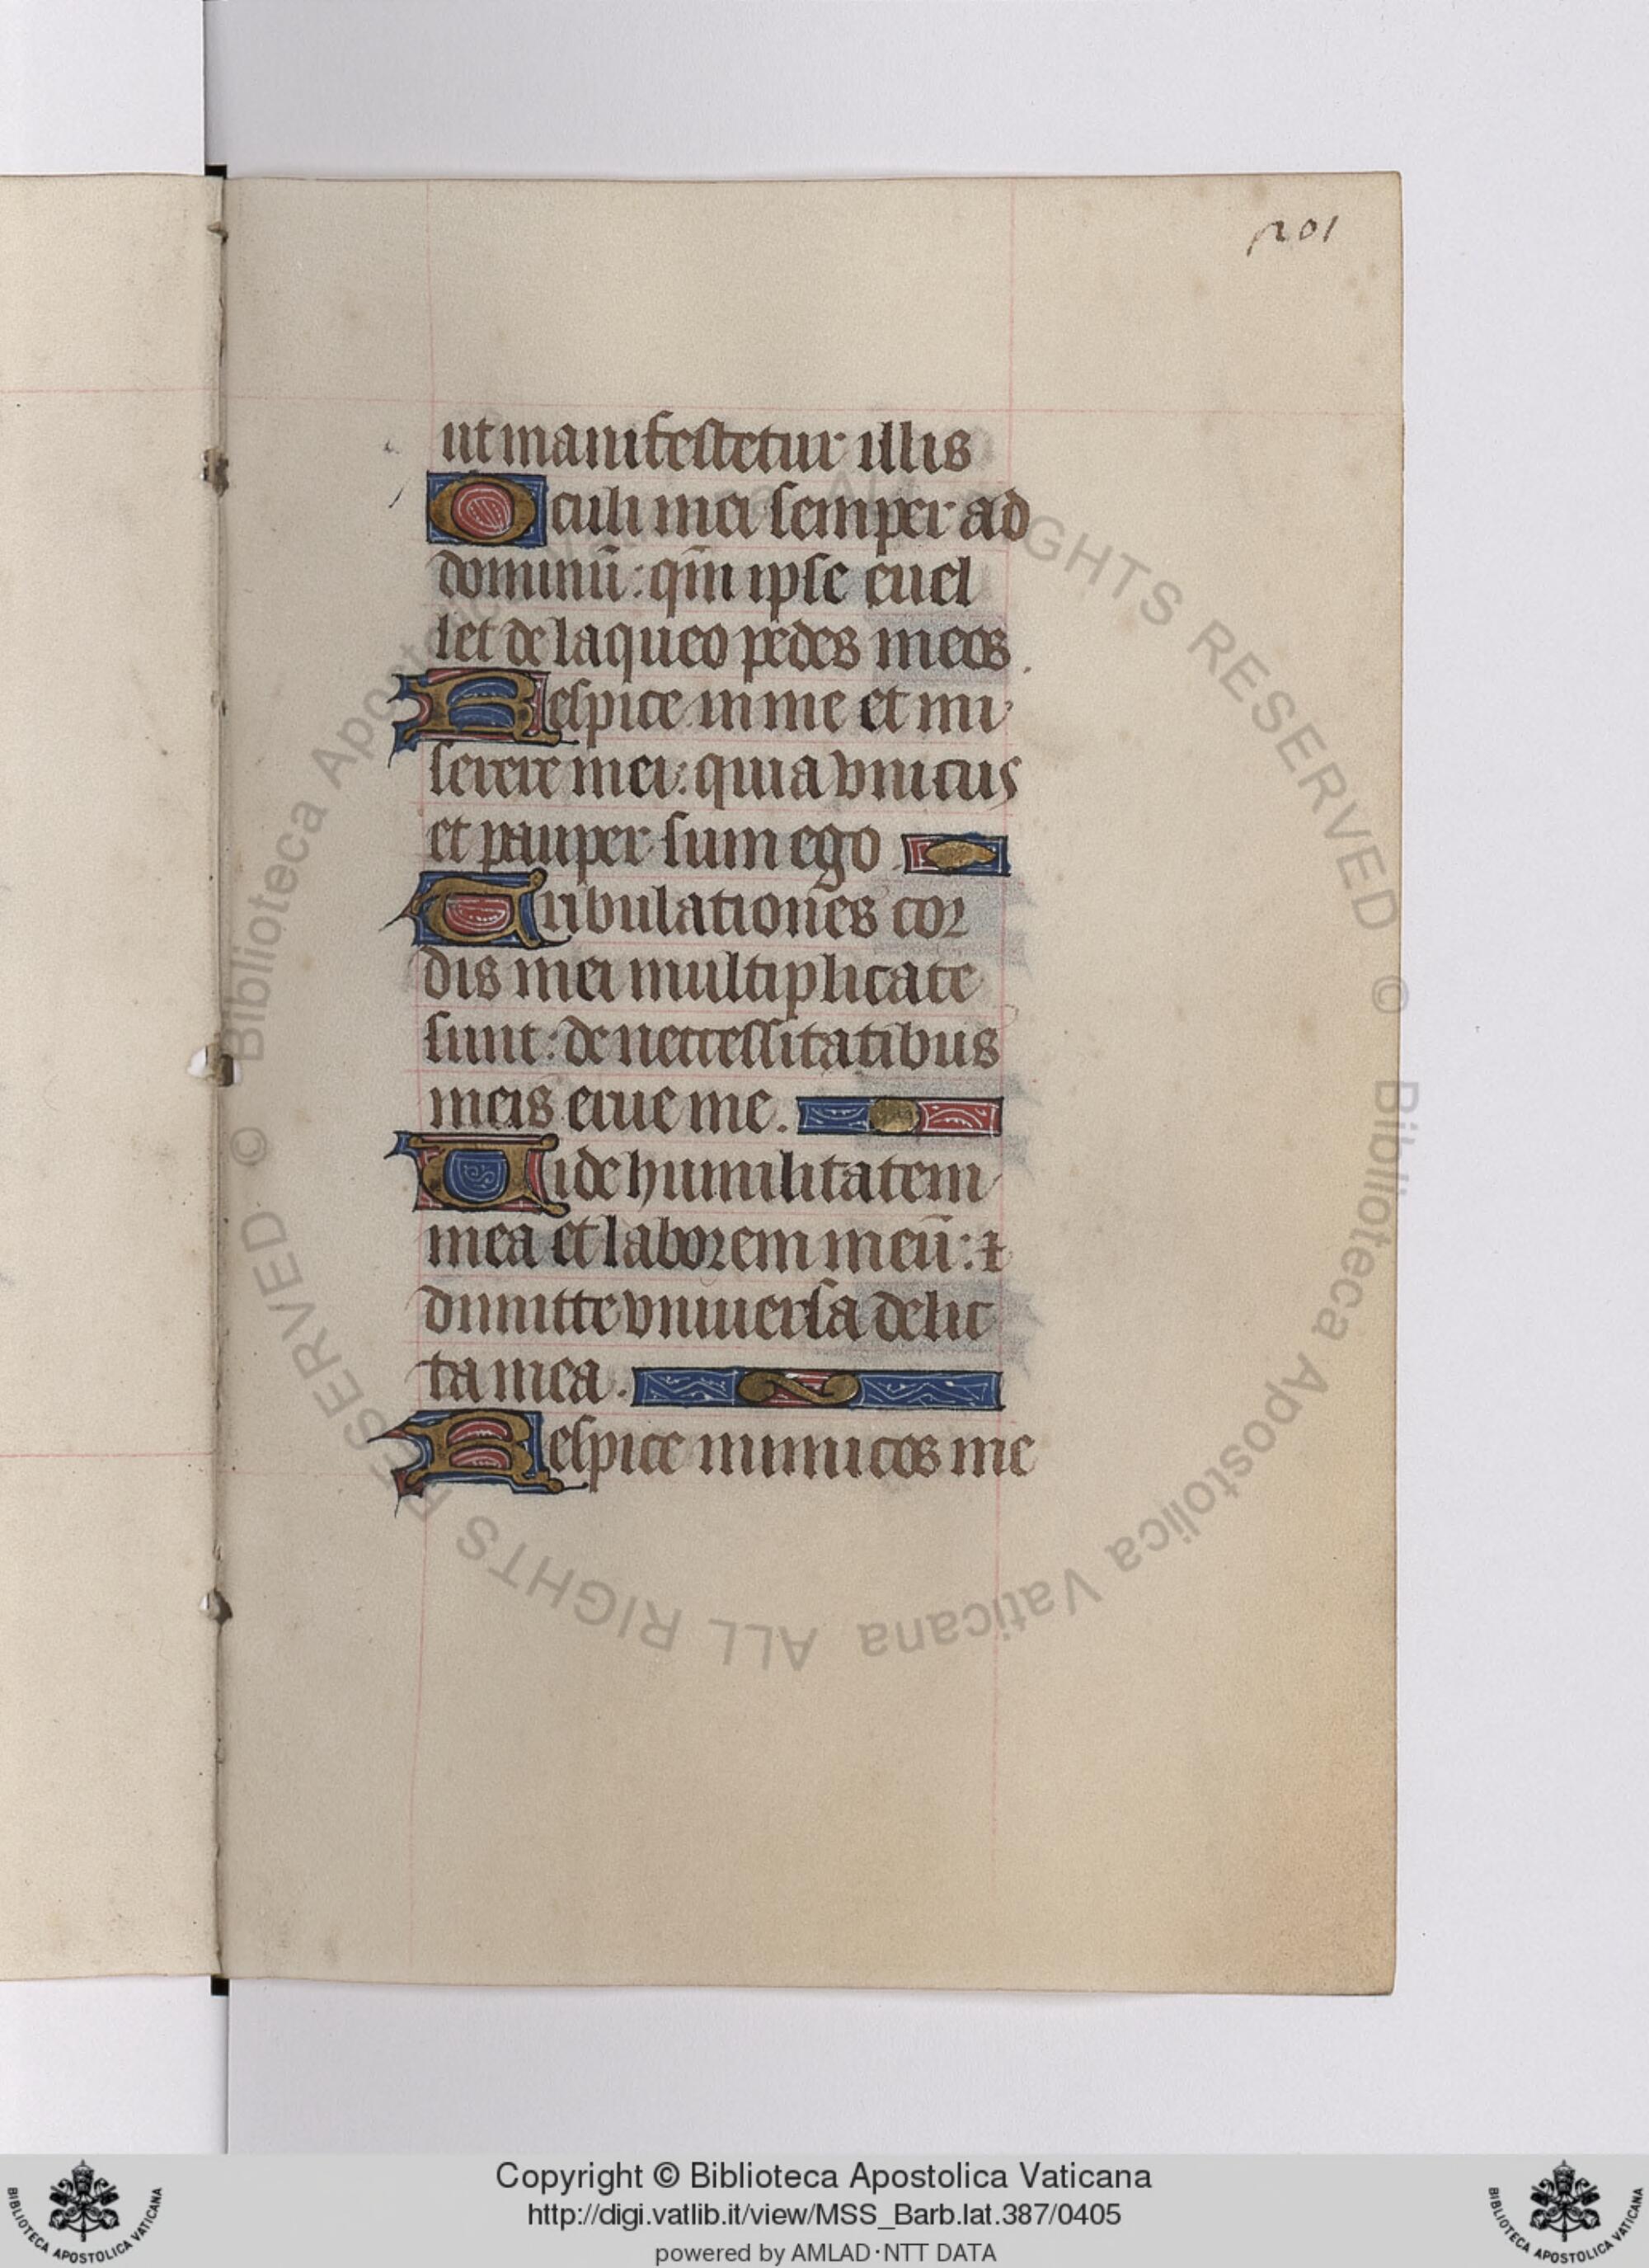 201
ut manifestetur illis
Oculi mei semper ad
dominū: qm̄ ipse euel
let de laqueo pedes meos.
Respice in me et mi
serere mei: quia vnicus
et pauper sum ego.
Tribulationes cor
dis mei multiplicate
sunt: de neccessitatibus
meis erue me.
Vide humilitatem
meā et laborem meū: ⁊
dimitte vniuersa delic
ta mea.
Respice inimicos me
© Biblioteca Apostolica Vaticana ALL RIGHTS RESERVED © Biblioteca Apostolica Vaticana ALL RIGHTS RESERVED
Copyright © Biblioteca Apostolica Vaticana
http://digi.vatlib.it/view/MSS_Barb.lat.387/0405
powered by AMLAD·NTT DATA
BIBLIOTECA APOSTOLICA VATICANA
BIBLIOTECA APOSTOLICA VATICANA